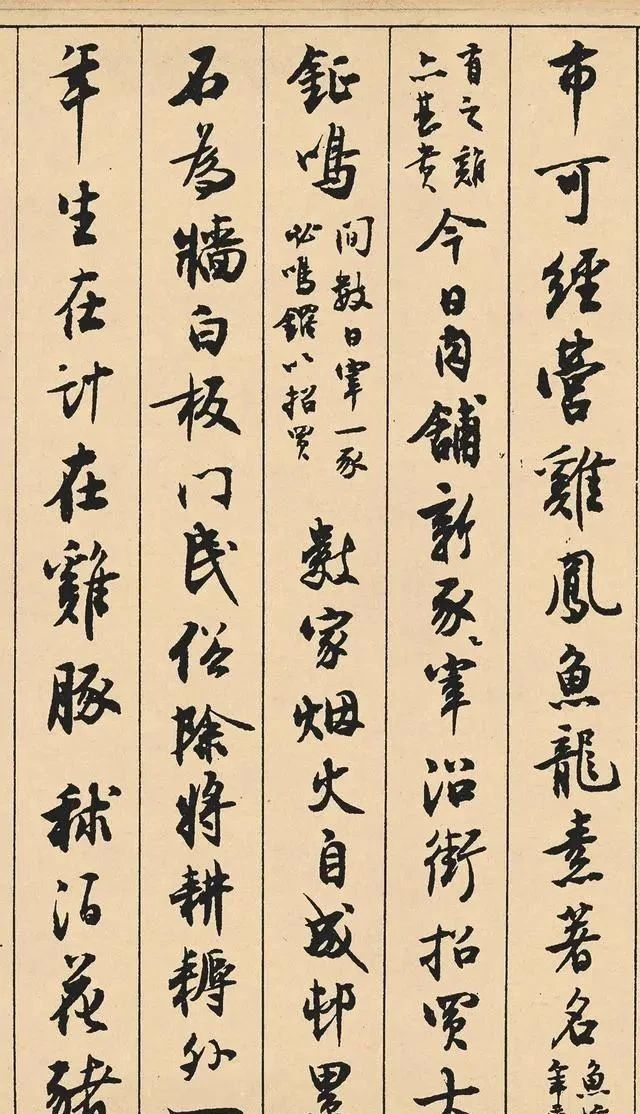 市可經營雞鳳魚龍素著名魚
年
有之雞
亦甚貴
今日肉舖新豕宰沿街招買大
鉦鳴
間數日宰一豕
必鳴鑼以招買
數家烟火自成邨累
石為牆白板門民俗除將耕耨外一
年生在計在雞豚秫酒花豬